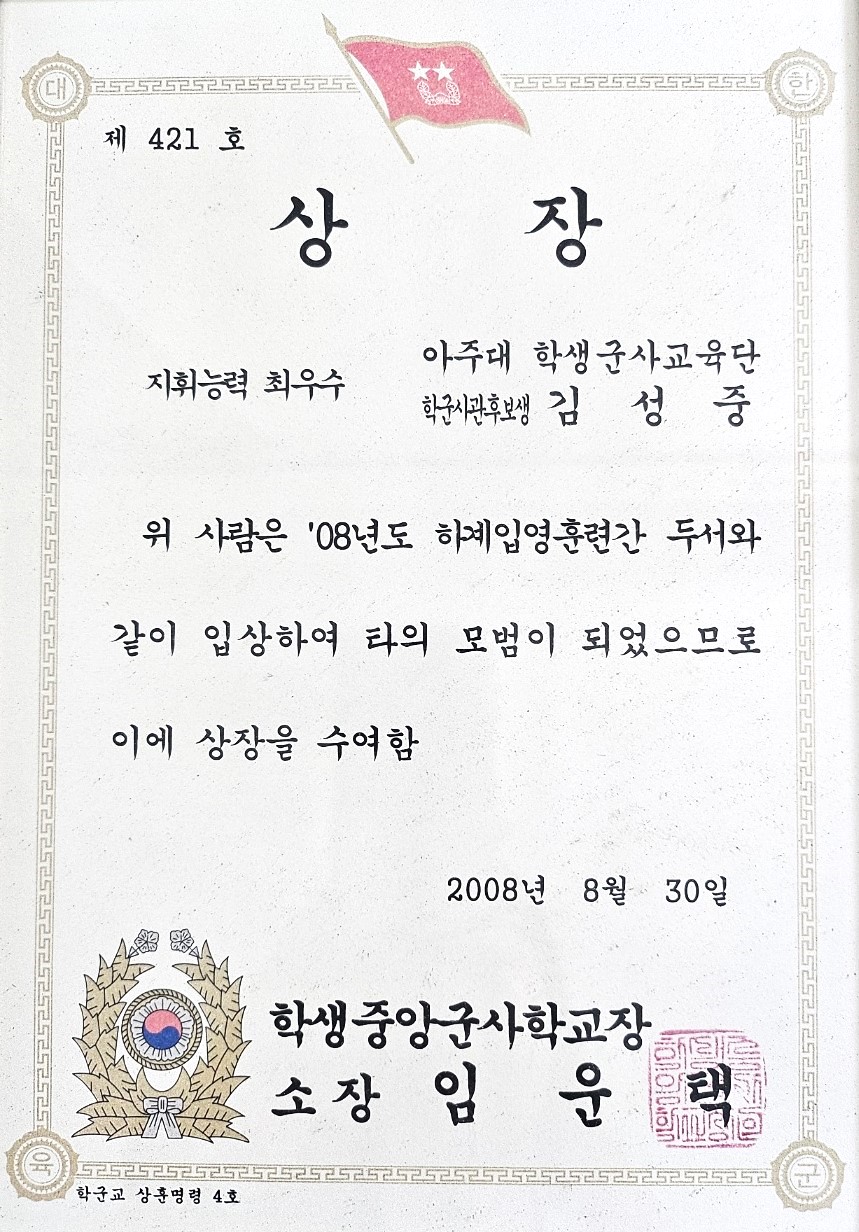 대
한
제 421 호
상 장
지휘능력 최우수
아주대 학생군사교육단
학군사관후보생 김 성 중
위 사람은 '08년도 하계입영훈련간 두서와
같이 입상하여 타의 모범이 되었으므로
이에 상장을 수여함
2008년 8월 30일
학생중앙군사학교장
소장 임 운 택
육
군
학군교 상훈명령 4호